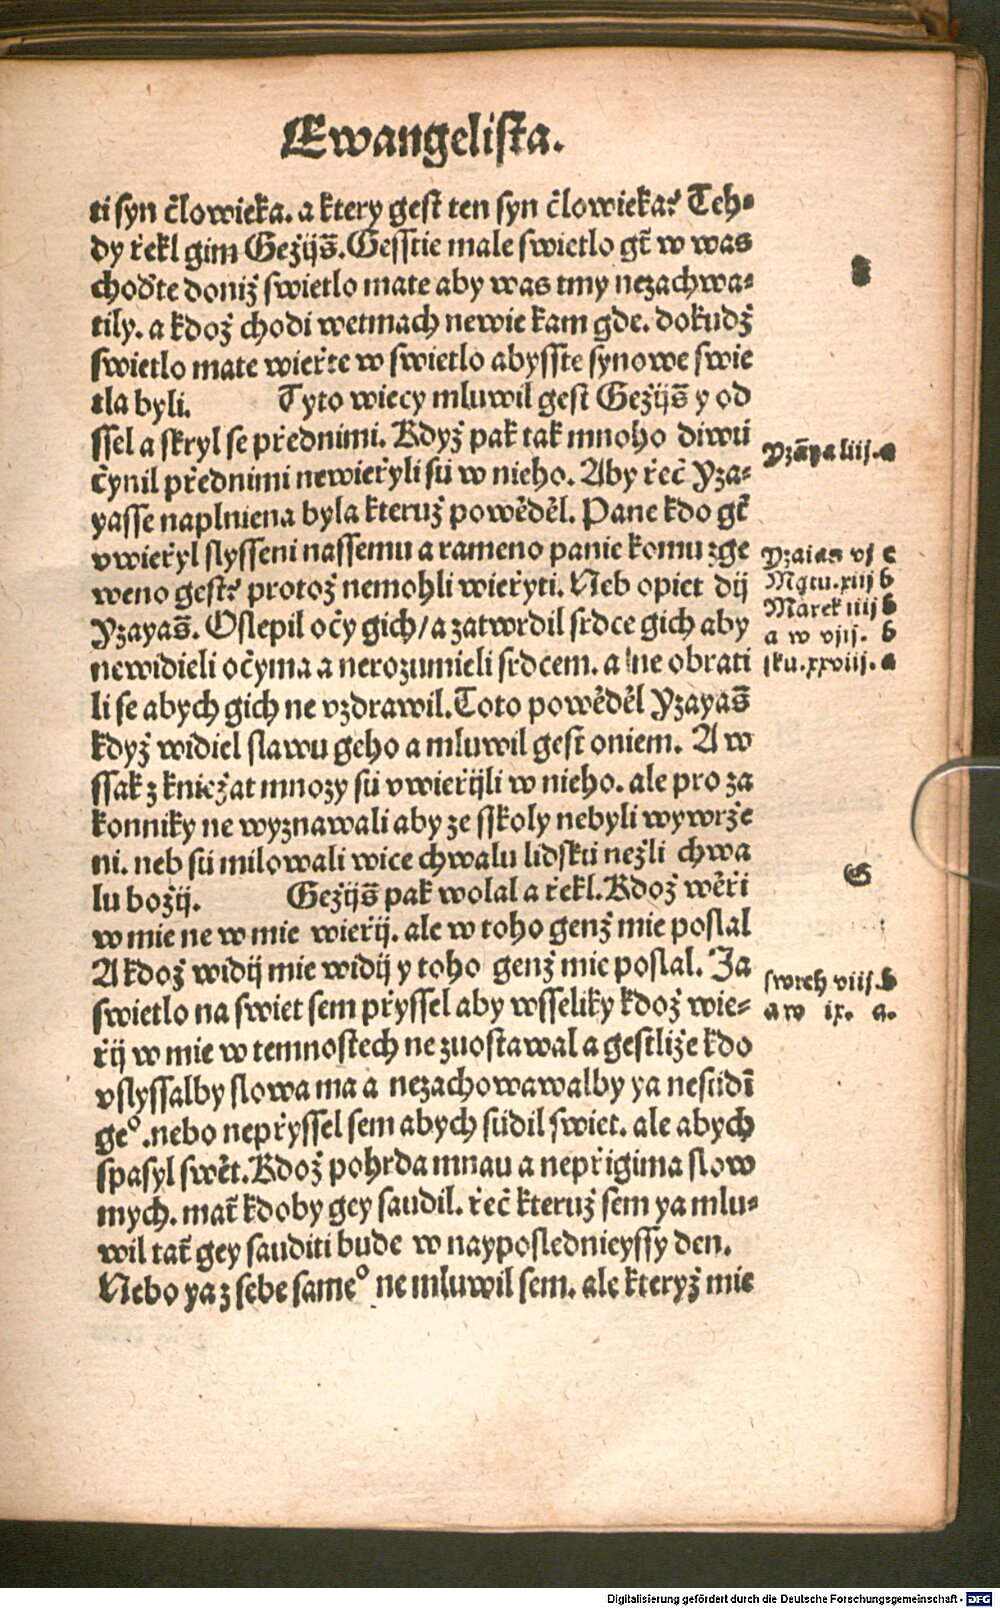 Ewangelista.
ti syn člowieka. a ktery gest ten syn člowieka? Teh-
dy řekl gim Gežijs̄. Gesstie male swietlo gt̄ w was
choďte doniž swietlo mate aby was tmy nezachwa-
tily. a kdož chodi wetmach newie kam gde. dokudž
swietlo mate wieřte w swietlo abysste synowe swie
tla byli. Tyto wiecy mluwil gest Gežijs̄ y od
ssel a skryl se přednimi. Když pak tak mnoho diwů
čynil přednimi newieřyli sů w nieho. Aby řeč Yza-
yasse naplniena byla kteruž powěděl. Pane kdo gt̄
vwieřyl slysseni nassemu a rameno panie komu zge
weno gest? protož nemohli wieřyti. Neb opiet dij
Yzayas̄. Oslepil očy gich/a zatwrdil srdce gich aby
newidieli očyma a nerozumieli srdcem. a ne obrati
li se abych gich ne vzdrawil. Toto powěděl Yzayas̄
když widiel slawu geho a mluwil gest oniem. A w
ssak z kniežat mnozy sů vwieřijli w nieho. ale pro za
konniky ne wyznawali aby ze sskoly nebyli wywrže
ni. neb sů milowali wice chwalu lidsků nežli chwa
lu božij. Gežijs̄ pak wolal a řekl. Kdož wěři
w mie ne w mie wieřij. ale w toho genž mie poslal
A kdož widij mie widij y toho genž mie poslal. Ja
swietlo na swiet sem přyssel aby wsseliky kdož wie-
řij w mie w temnostech ne zuostawal a gestliže kdo
vslyssalby slowa ma a nezachowawalby ya nesůdī
ge°. nebo nepřyssel sem abych sůdil swiet. ale abych
spasyl swět. Kdož pohrda mnau a nepřigima slow
mych. mat̄ kdoby gey saudil. řeč kteruž sem ya mlu-
wil tat̄ gey sauditi bude w nayposlednieyssy den.
Nebo ya z sebe same° ne mluwil sem. ale kteryž mie
Yzāya liij. a
Yzaias vj c
Matu. xiij b
Marek iiij b
a w vjij. b
sku. xxviij. a
G
swrch viij. b
a w ix. a.
Digitalisierung gefördert durch die Deutsche Forschungsgemeinschaft - DFG